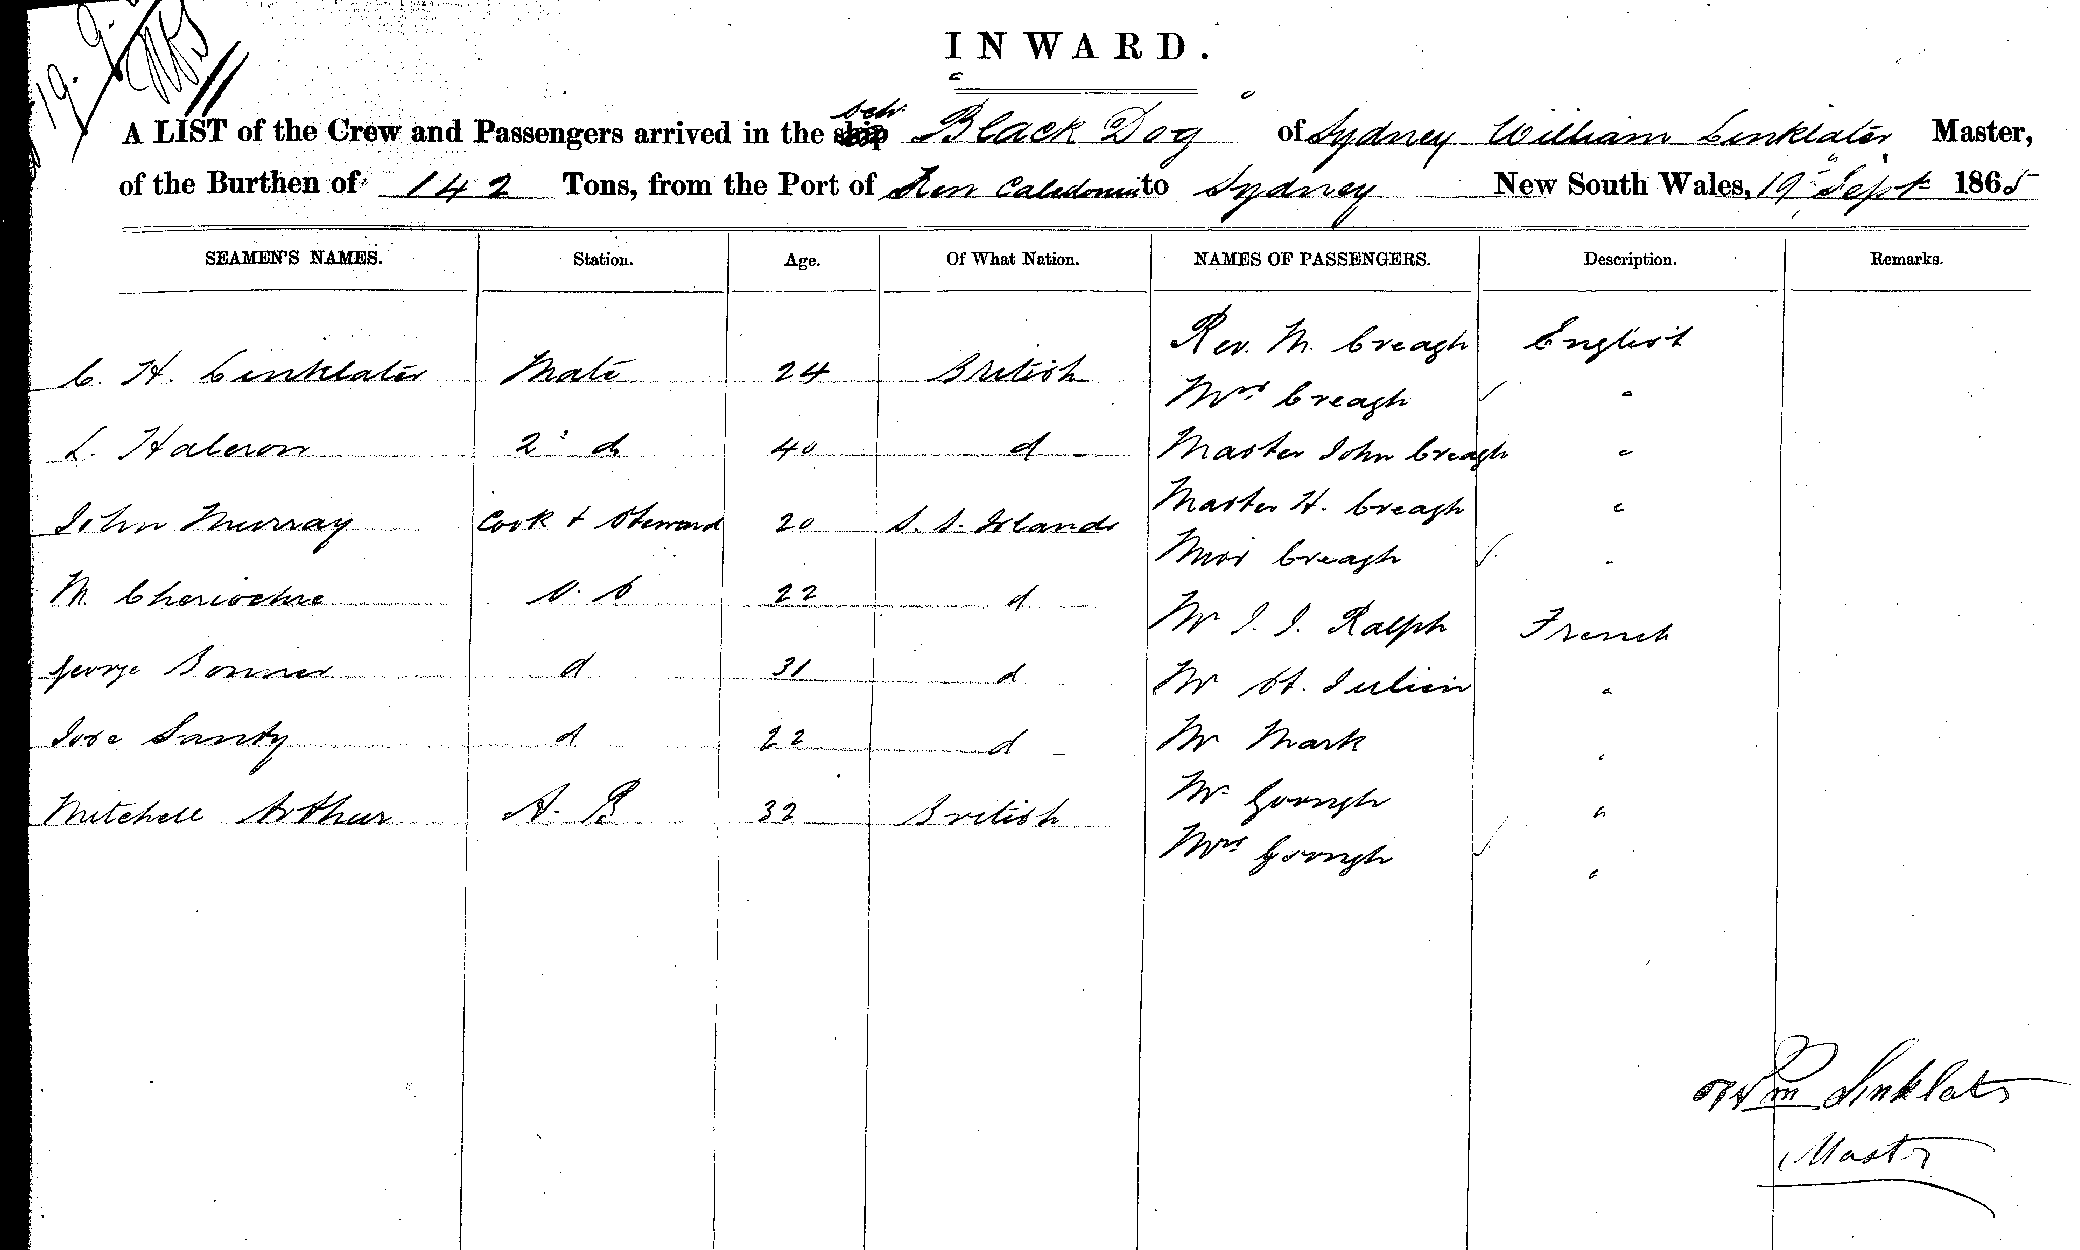 19. 9.
INWARD.
A LIST of the Crew and Passengers arrived in the ship sch Black Dog of Sydney William Linklater Master,
of the Burthen of 142 Tons, from the Port of New Caledonia to Sydney New South Wales, 19 Sept 1865
SEAMEN'S NAMES. Station. Age. Of What Nation. NAMES OF PASSENGERS. Description. Remarks.
Rev. M. Creagh English
C. H. Linklater Mate 24 British
Mrs Creagh "
L. Halcron 2d do 40 d
Master John Creagh "
John Murray Cook + Steward 20 S. S. Islands
Master H. Creagh "
Miss Creagh "
M. 22 d
Mr J. J. Ralph French
George d 31 d
Mr St. Julien "
Jose Santy d 22 d
Mr Mark "
Mitchell Arthur A. B 32 British
Mr Goongh "
Mrs Goongh "
Wm Linklater
Master